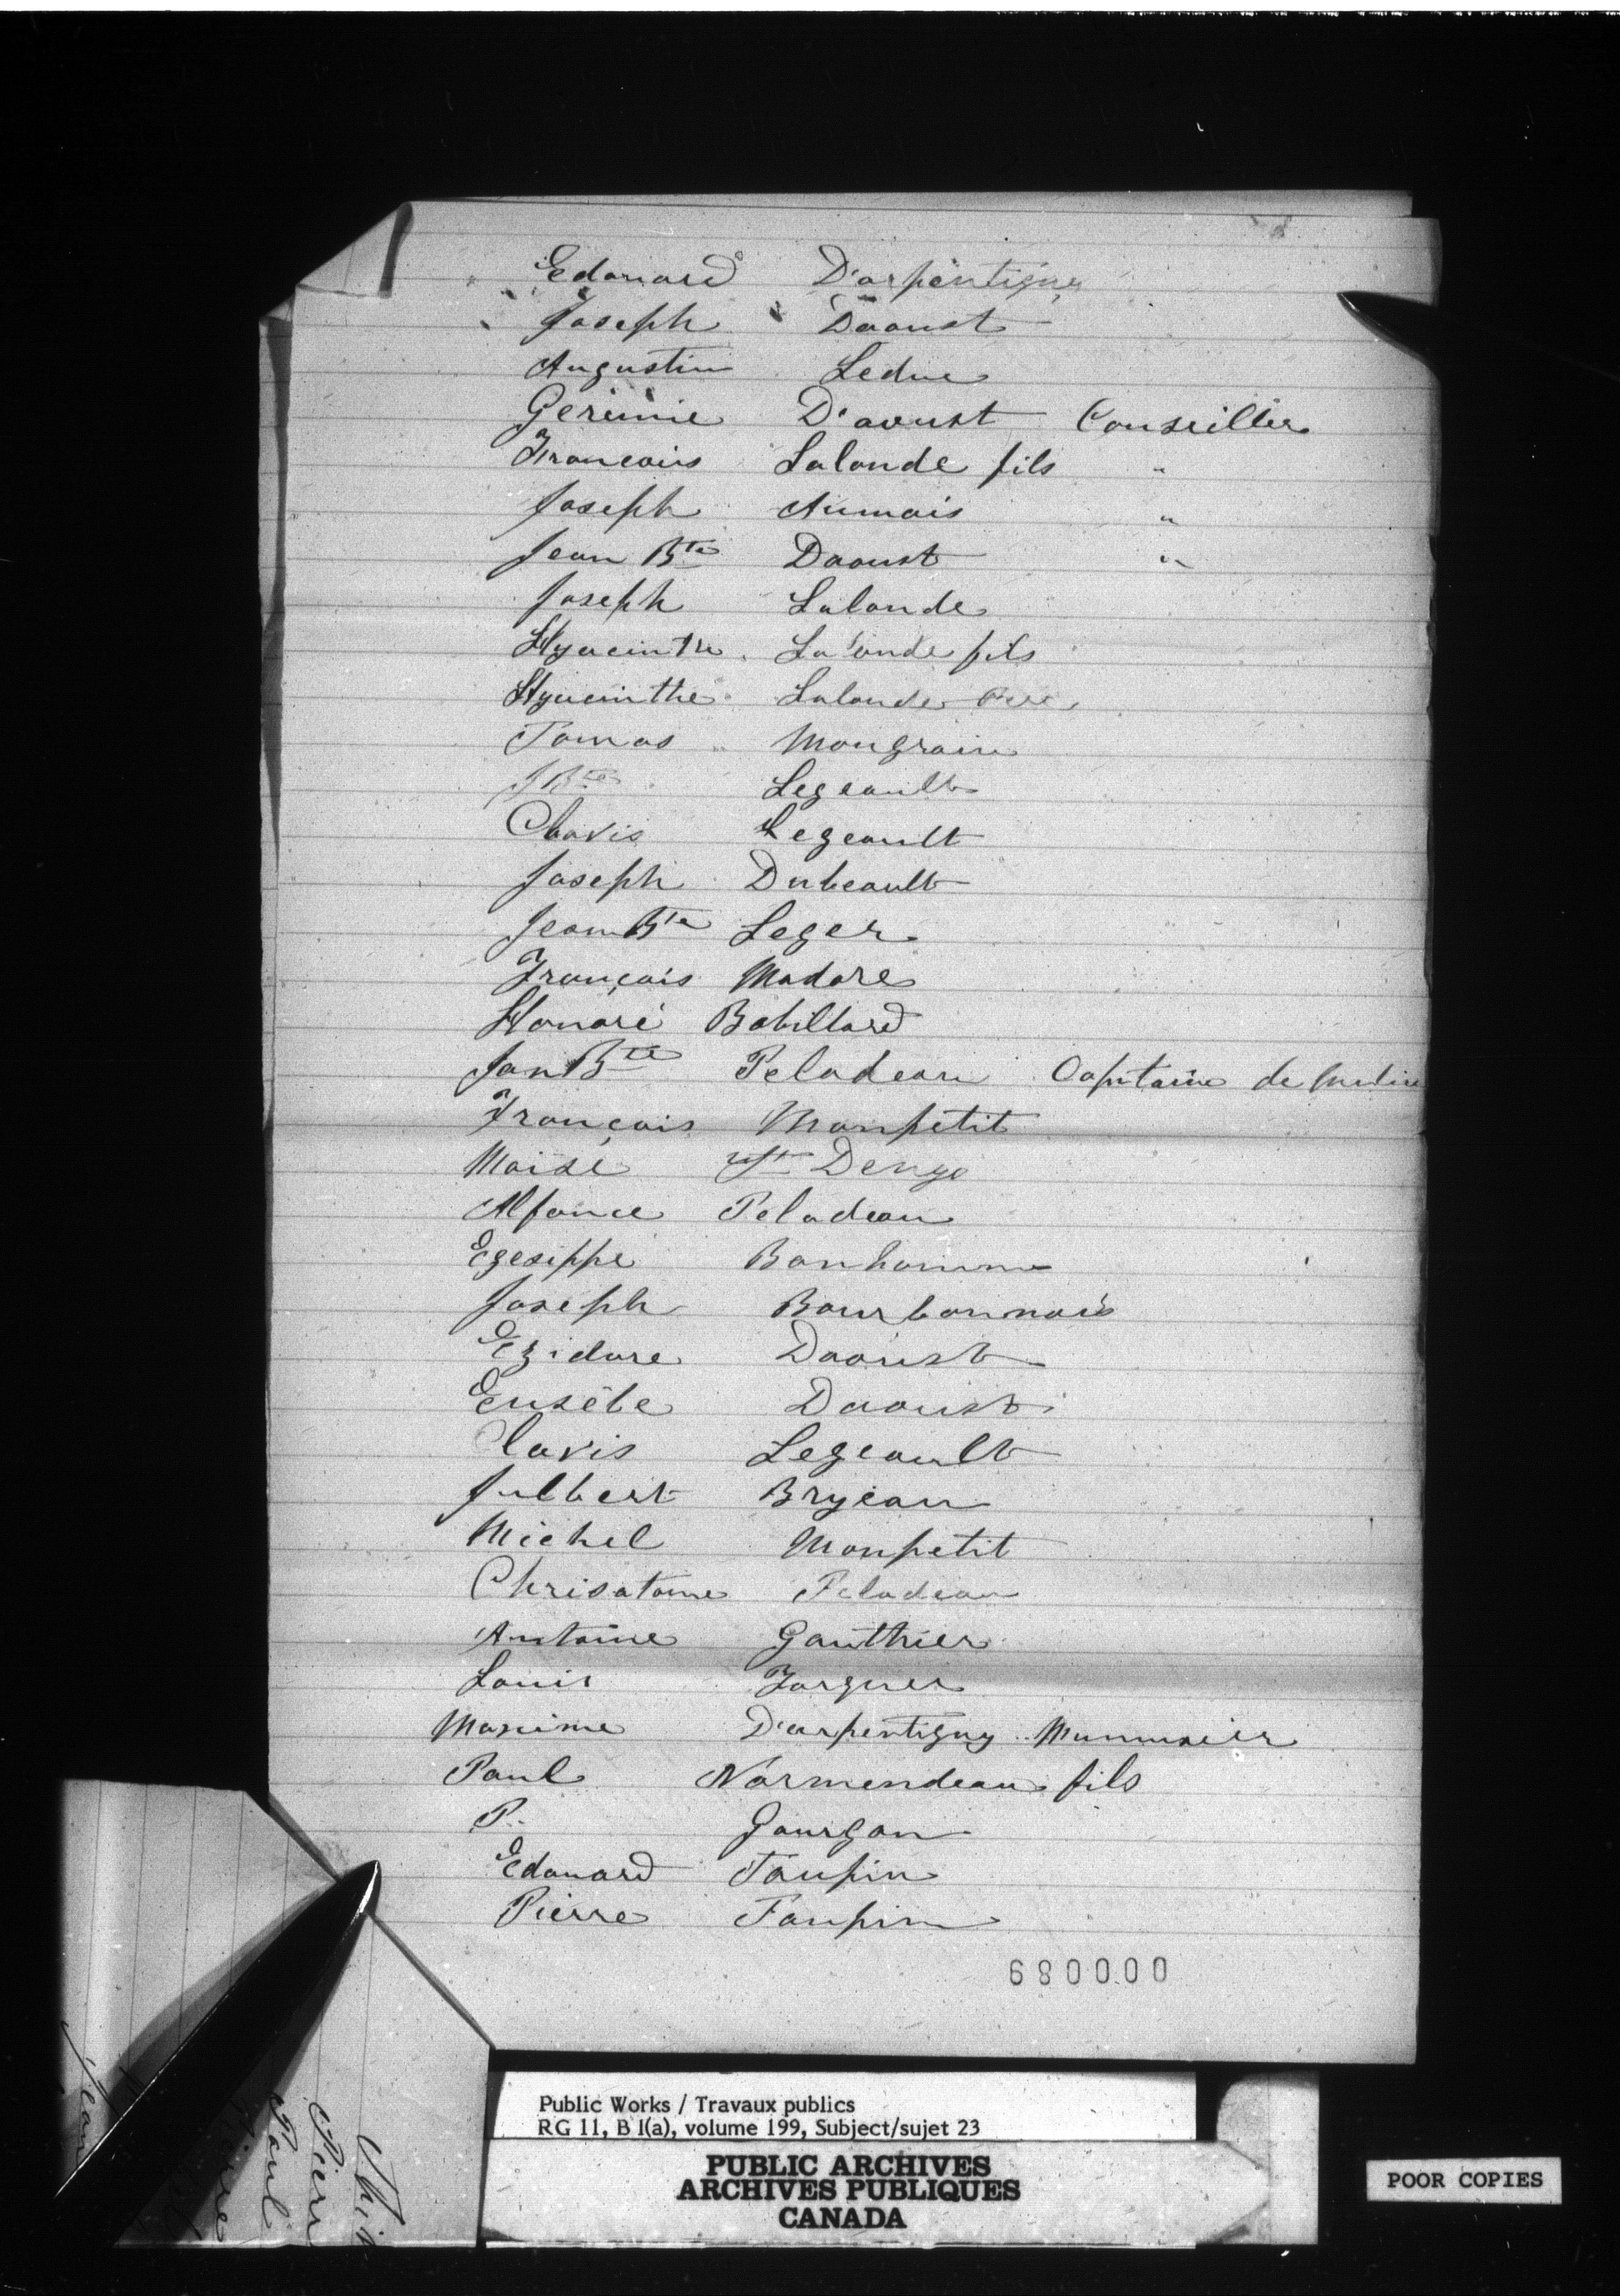 Edouard Darpentigny
Joseph Daoust
Augustin Leduc
Geremie D'aoust Conseiller
Francois Lalonde fils "
Joseph Aumais "
Jean Bte Daoust "
Joseph Lalonde
Hyacinthe Lalonde fils
Hyacinthe Lalonde Pere
Tomas Mongrain
J Bte Legeault
Clovis Legeault
Joseph Dubeault
Jean Bte Leger
François Madore
Honoré Babillard
Jan Bte Peladeau Capitaine de
François Monpetit
Moise St Denye
Alfonce Peladeau
Egesippe Bonhomme
Joseph Bourbonnais
Ezidore Daoust
Eusèbe Daoust
Clovis Legeault
Julbert Brijeau
Michel Monpetit
Chrisatome Peladeau
Antoine Gauthier
Louis
Maxime D'arpentigny
Paul Normendeau fils
P. Gourgon
Edouard Taupin
Pierre Taupin
000089
Public Works / Travaux publics
RG 11, B 1(a), volume 199, Subject/sujet 23
PUBLIC ARCHIVES
ARCHIVES PUBLIQUES
CANADA
POOR COPIES
Jean
Paul
Pierre